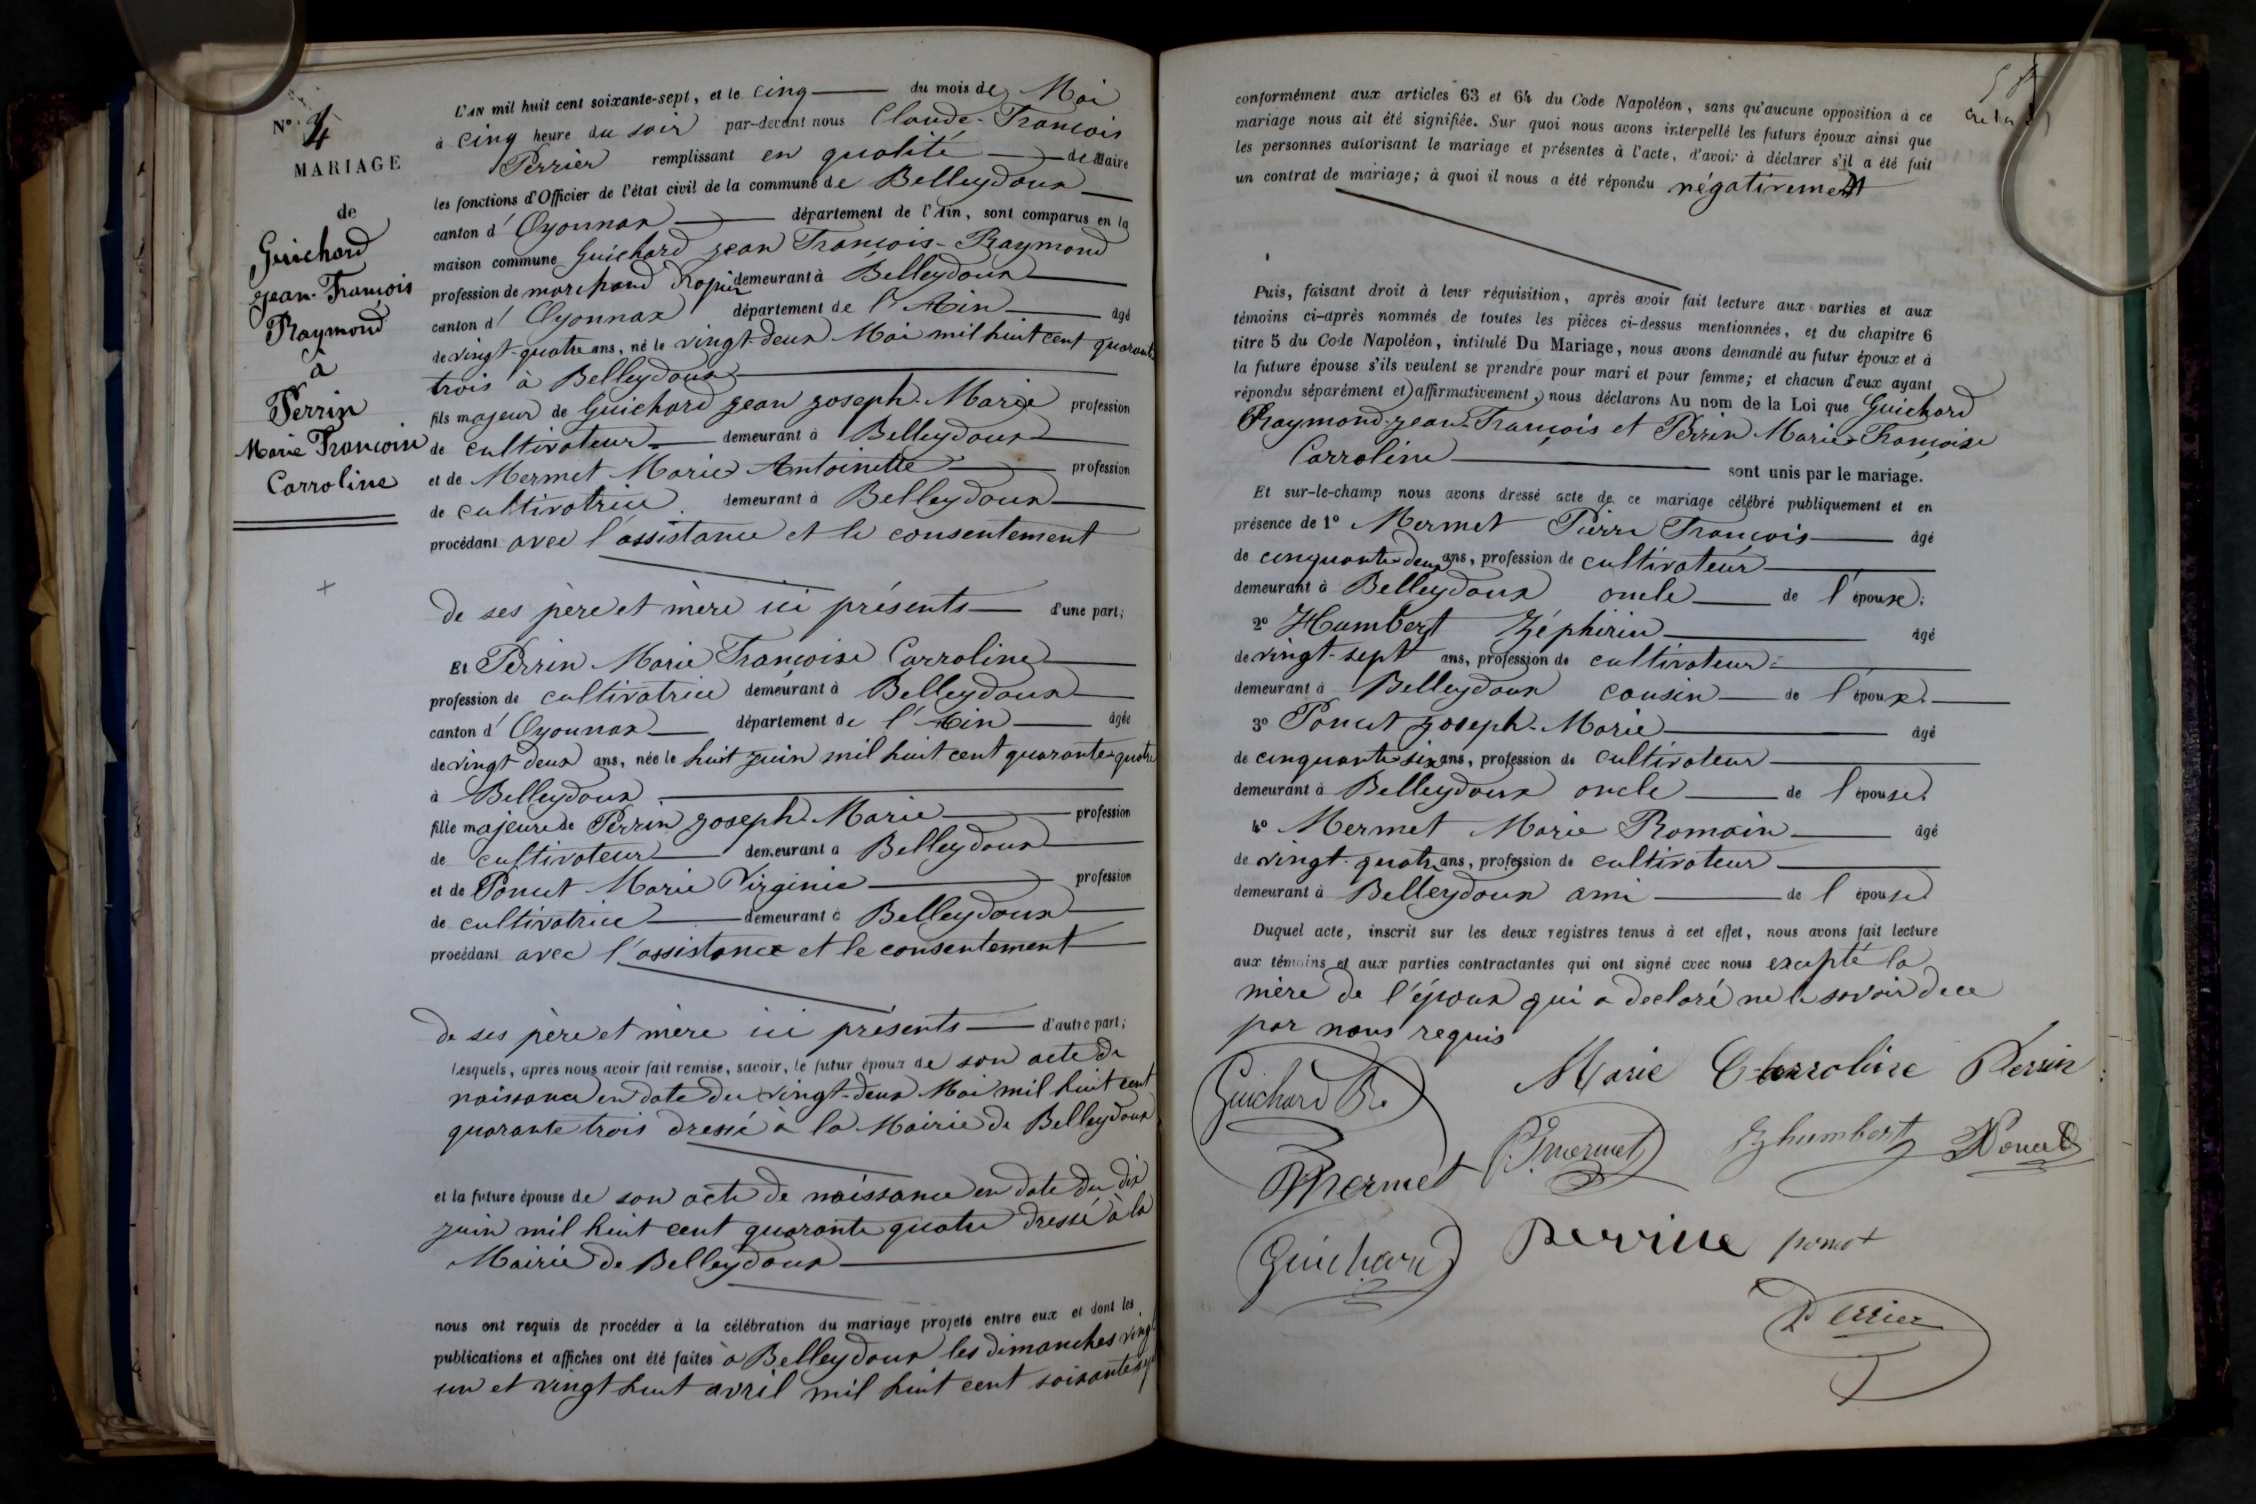 N° 4
MARIAGE
de
Guichard
Jean-François
Raymond
à
Perrin
Marie Françoise
Carroline
L'AN mil huit cent soixante-sept, et le cinq du mois de Mai
à cinq heure du soir par-devant nous Claude-François
Perrier remplissant en qualité de Maire
les fonctions d'Officier de l'état civil de la commune de Belleydoux
canton d' Oyonnax département de l'Ain, sont comparus en la
maison commune Guichard Jean François-Raymond
profession de marchand drapier demeurant à Belleydoux
canton d' Oyonnax département de l'Ain âgé
de vingt-quatre ans, né le vingt-deux Mai mil huit cent quarante
trois à Belleydoux
fils majeur de Guichard Jean Joseph-Marie profession
de cultivateur demeurant à Belleydoux
et de Mermet Marie Antoinette profession
de cultivatrice demeurant à Belleydoux
procédant avec l'assistance et le consentement
de ses père et mère ici présents d'une part;
Et Perrin Marie Françoise Carroline
profession de cultivatrice demeurant à Belleydoux
canton d' Oyonnax département de l'Ain âgée
de vingt deux ans, née le huit juin mil huit cent quarante-quatre
à Belleydoux
fille majeure de Perrin Joseph-Marie profession
de cultivateur demeurant à Belleydoux
et de Poncet Marie Virginie profession
de cultivatrice demeurant à Belleydoux
procédant avec l'assistance et le consentement
de ses père et mère ici présents d'autre part;
Lesquels, après nous avoir fait remise, savoir, le futur époux de son acte de
naissance en date du vingt-deux Mai mil huit cent
quarante trois dressé à la Mairie de Belleydoux
et la future épouse de son acte de naissance en date du dix
juin mil huit cent quarante quatre dressé à la
Mairie de Belleydoux
nous ont requis de procéder à la célébration du mariage projeté entre eux et dont les
publications et affiches ont été faites à Belleydoux les dimanches vingt
un et vingt huit avril mil huit cent soixante sept
conformément aux articles 63 et 64 du Code Napoléon, sans qu'aucune opposition à ce
mariage nous ait été signifiée. Sur quoi nous avons interpellé les futurs époux ainsi que
les personnes autorisant le mariage et présentes à l'acte, d'avoir à déclarer s'il a été fait
un contrat de mariage; à quoi il nous a été répondu négativement
Puis, faisant droit à leur réquisition, après avoir fait lecture aux parties et aux
témoins ci-après nommés de toutes les pièces ci-dessus mentionnées, et du chapitre 6
titre 5 du Code Napoléon, intitulé Du Mariage, nous avons demandé au futur époux et à
la future épouse s'ils veulent se prendre pour mari et pour femme; et chacun d'eux ayant
répondu séparément et affirmativement, nous déclarons Au nom de la Loi que Guichard
Raymond-Jean-François et Perrin Marie-Françoise
Carroline sont unis par le mariage.
Et sur-le-champ nous avons dressé acte de ce mariage célébré publiquement et en
présence de 1° Mermet Pierre François âgé
de cinquante deux ans, profession de cultivateur
demeurant à Belleydoux oncle de l'époux;
2° Humbert Zéphirin âgé
de vingt-sept ans, profession de cultivateur
demeurant à Belleydoux cousin de l'époux
3° Poncet Joseph-Marie âgé
de cinquante six ans, profession de cultivateur
demeurant à Belleydoux oncle de l'épouse
4° Mermet Marie Romain âgé
de vingt-quatre ans, profession de cultivateur
demeurant à Belleydoux ami de l'épouse
Duquel acte, inscrit sur les deux registres tenus à cet effet, nous avons fait lecture
aux témoins et aux parties contractantes qui ont signé avec nous excepté la
mère de l'époux qui a déclaré ne le savoir de ce
par nous requis
Guichard Rd Marie Carroline Perrin
Mermet PFmermet Zhumbert Poncet
Guichard Perrin ponset
Perrier